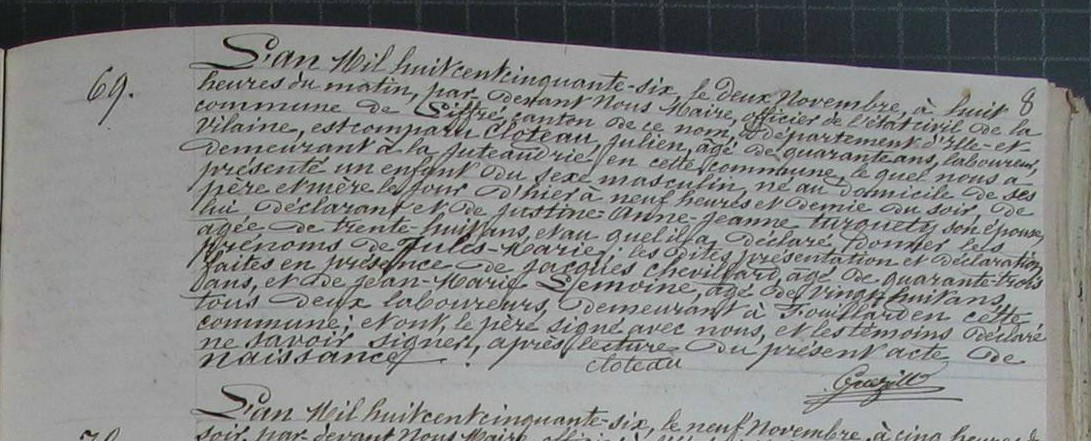 69.
L'an Mil huit cent cinquante-six, le deux Novembre, à huit 8
heures du matin, par-devant Nous Maire, officier de l'état civil de la
commune de Liffré, canton de ce nom, département d'Ille-et-
Vilaine, est comparu Cloteau, Julien, âgé de quarante ans, laboureur,
demeurant à la Juteaudrie, en cette commune, le quel nous a
présenté un enfant du sexe masculin, né au domicile de ses
père et mère le jour d'hier à neuf heures et demie du soir, de
lui déclarant et de Justine-Anne-Jeanne Turquety son épouse,
agée de trente-huit ans, et au quel il a déclaré donner les
prénoms de Jules-Marie; les dites présentation et déclaration
faites en présence de Jacques Chevillard, agé de quarante-trois
ans, et de Jean-Marie Lemoine, agé de vingt-huit ans,
tous deux laboureurs, demeurant à Fouillard en cette
commune; et ont, le père signé avec nous, et les témoins déclaré
ne savoir signer, après lecture du présent acte de
naissance.
Cloteau
L'an Mil huit cent cinquante-six, le neuf Novembre, à cinq heures
70.
soir, par-devant Nous Maire,